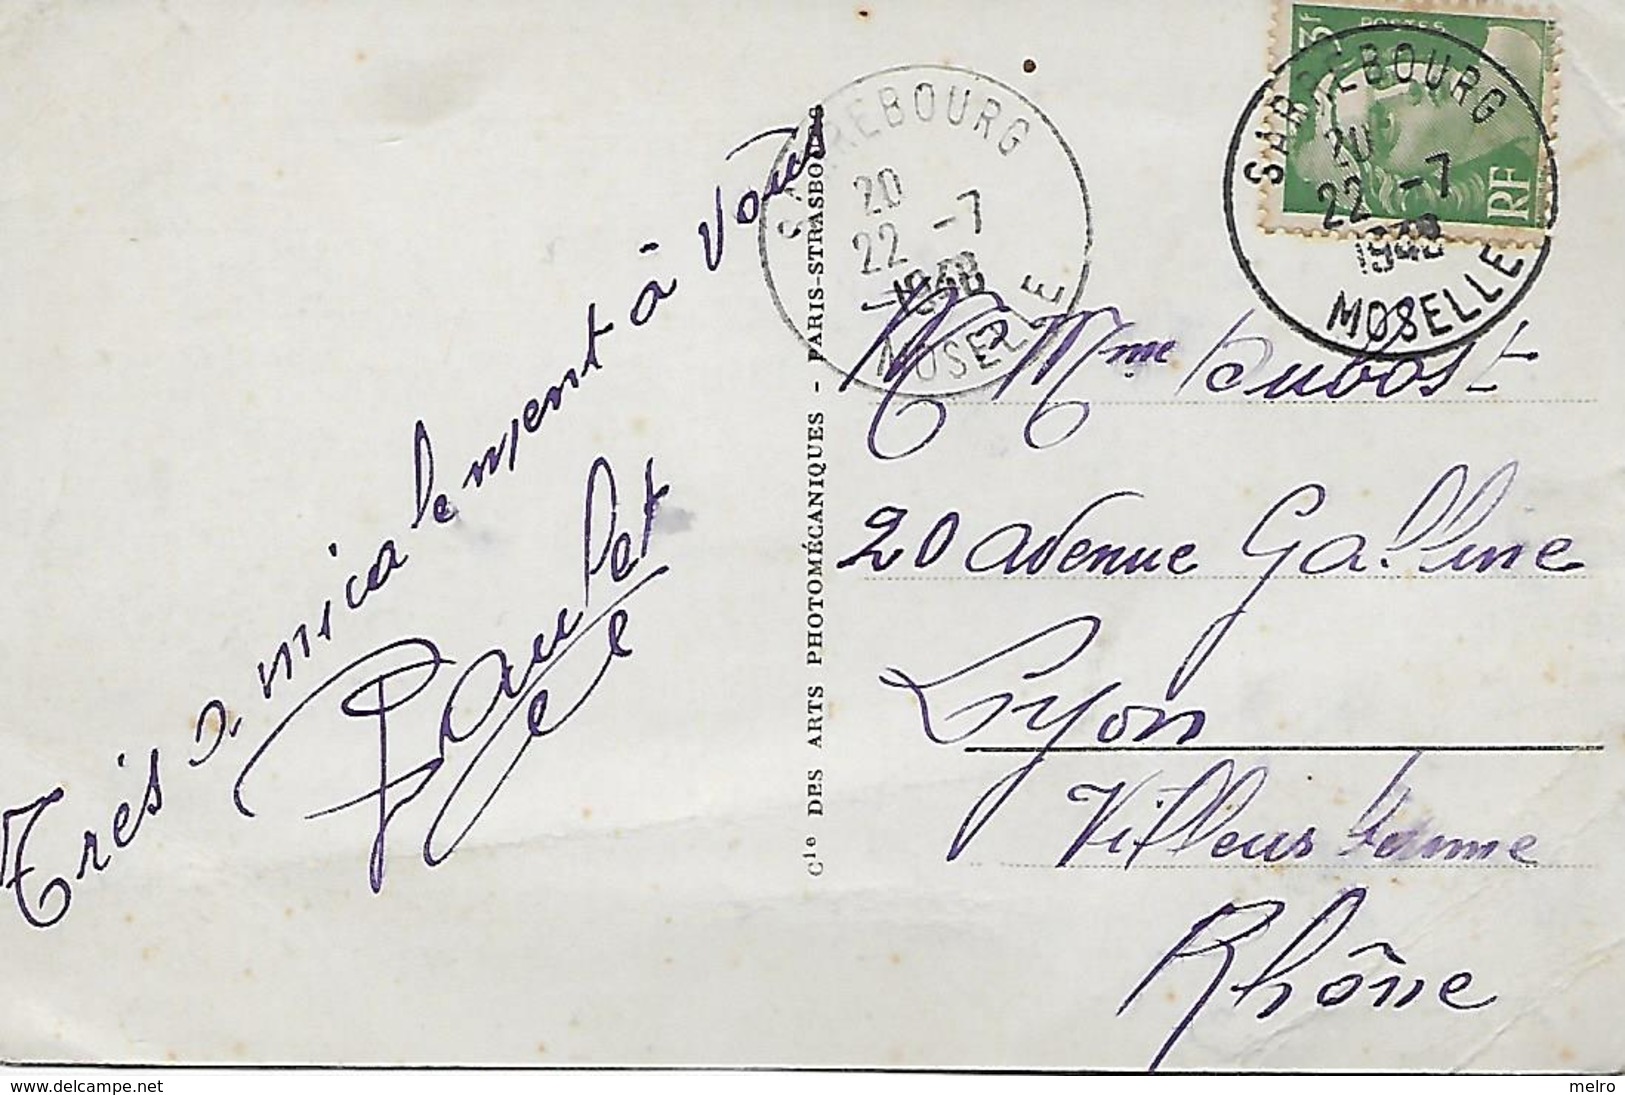 Très amicalement à vous
Paulet
Cie DES ARTS PHOTOMÉCANIQUES - PARIS-STRASBOURG
SARREBOURG
20
22 -7
1948
MOSELLE
3F
POSTES
RF
SARREBOURG
20
22 -7
1948
MOSELLE
M Mme Dubost
20 avenue Galline
Lyon
Villeurbanne
Rhône
www.delcampe.net
melro